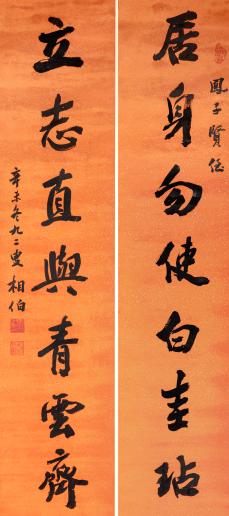 居身勿使白圭玷
鳳子賢侄
立志直與青雲齊
辛未冬九二叟相伯